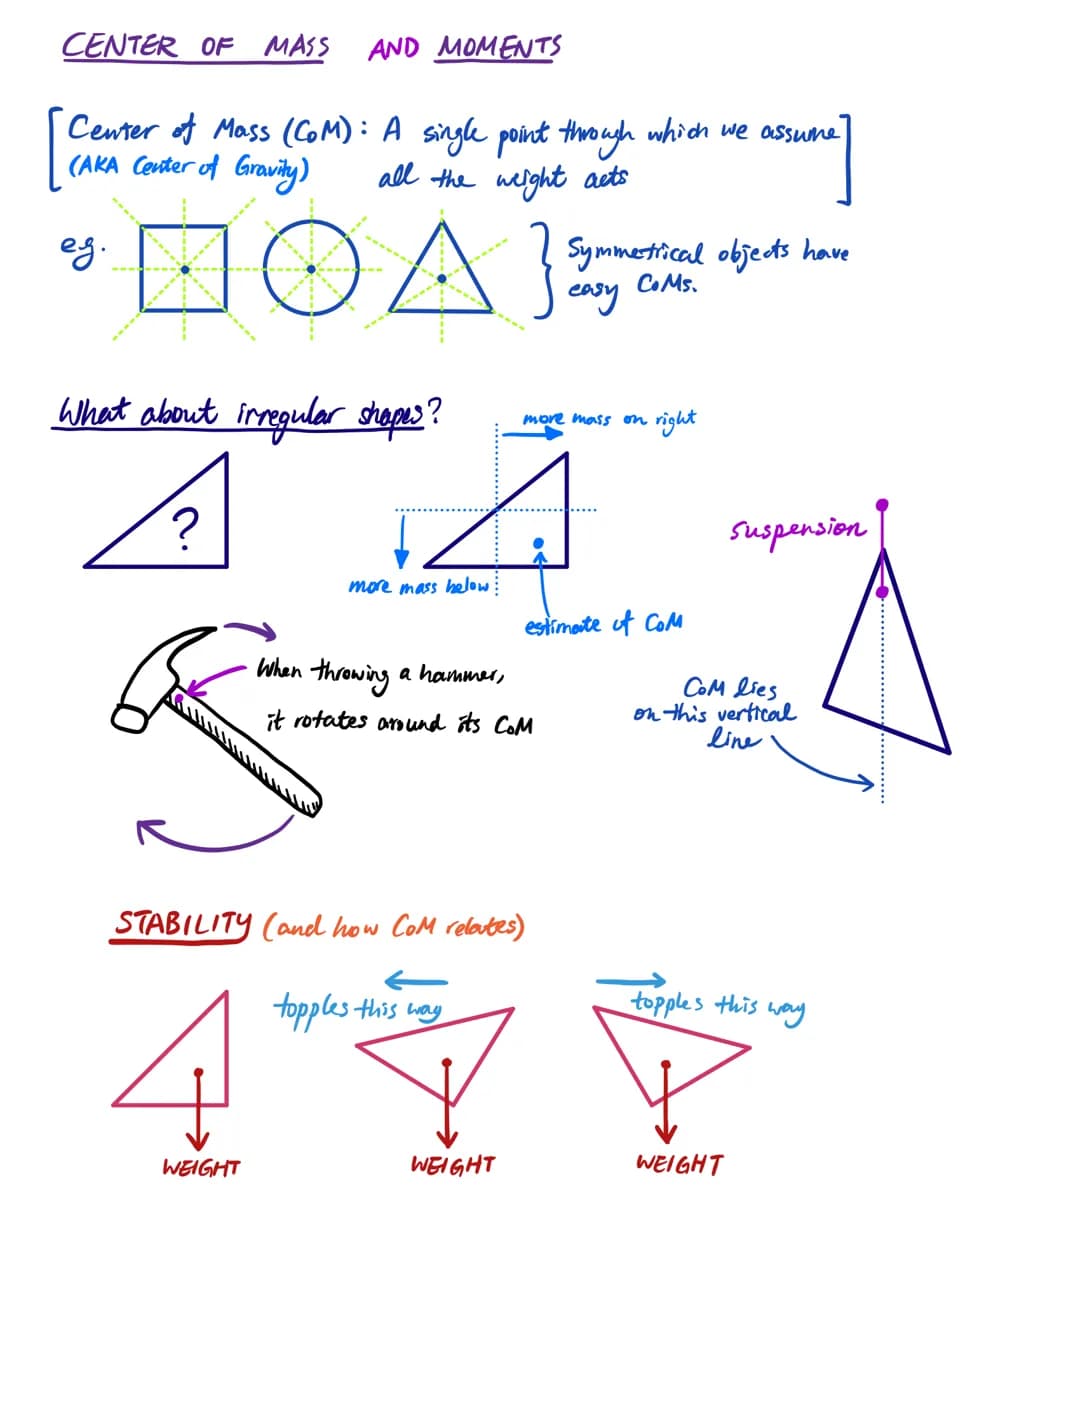 CENTER OF MASS AND MOMENTS
Center of Mass (CoM): A single point through which we assume
(AKA Center of Gravity) all the weight acts
eg.
Symmetrical objects have
easy CoMs.
What about irregular shapes?
more mass on right
?
more mass below
estimate of CoM
suspension
CoM lies
on this vertical
line
When throwing a hammer,
it rotates around its CoM
STABILITY (and how CoM relates)
topples this way
topples this way
WEIGHT
WEIGHT
WEIGHT